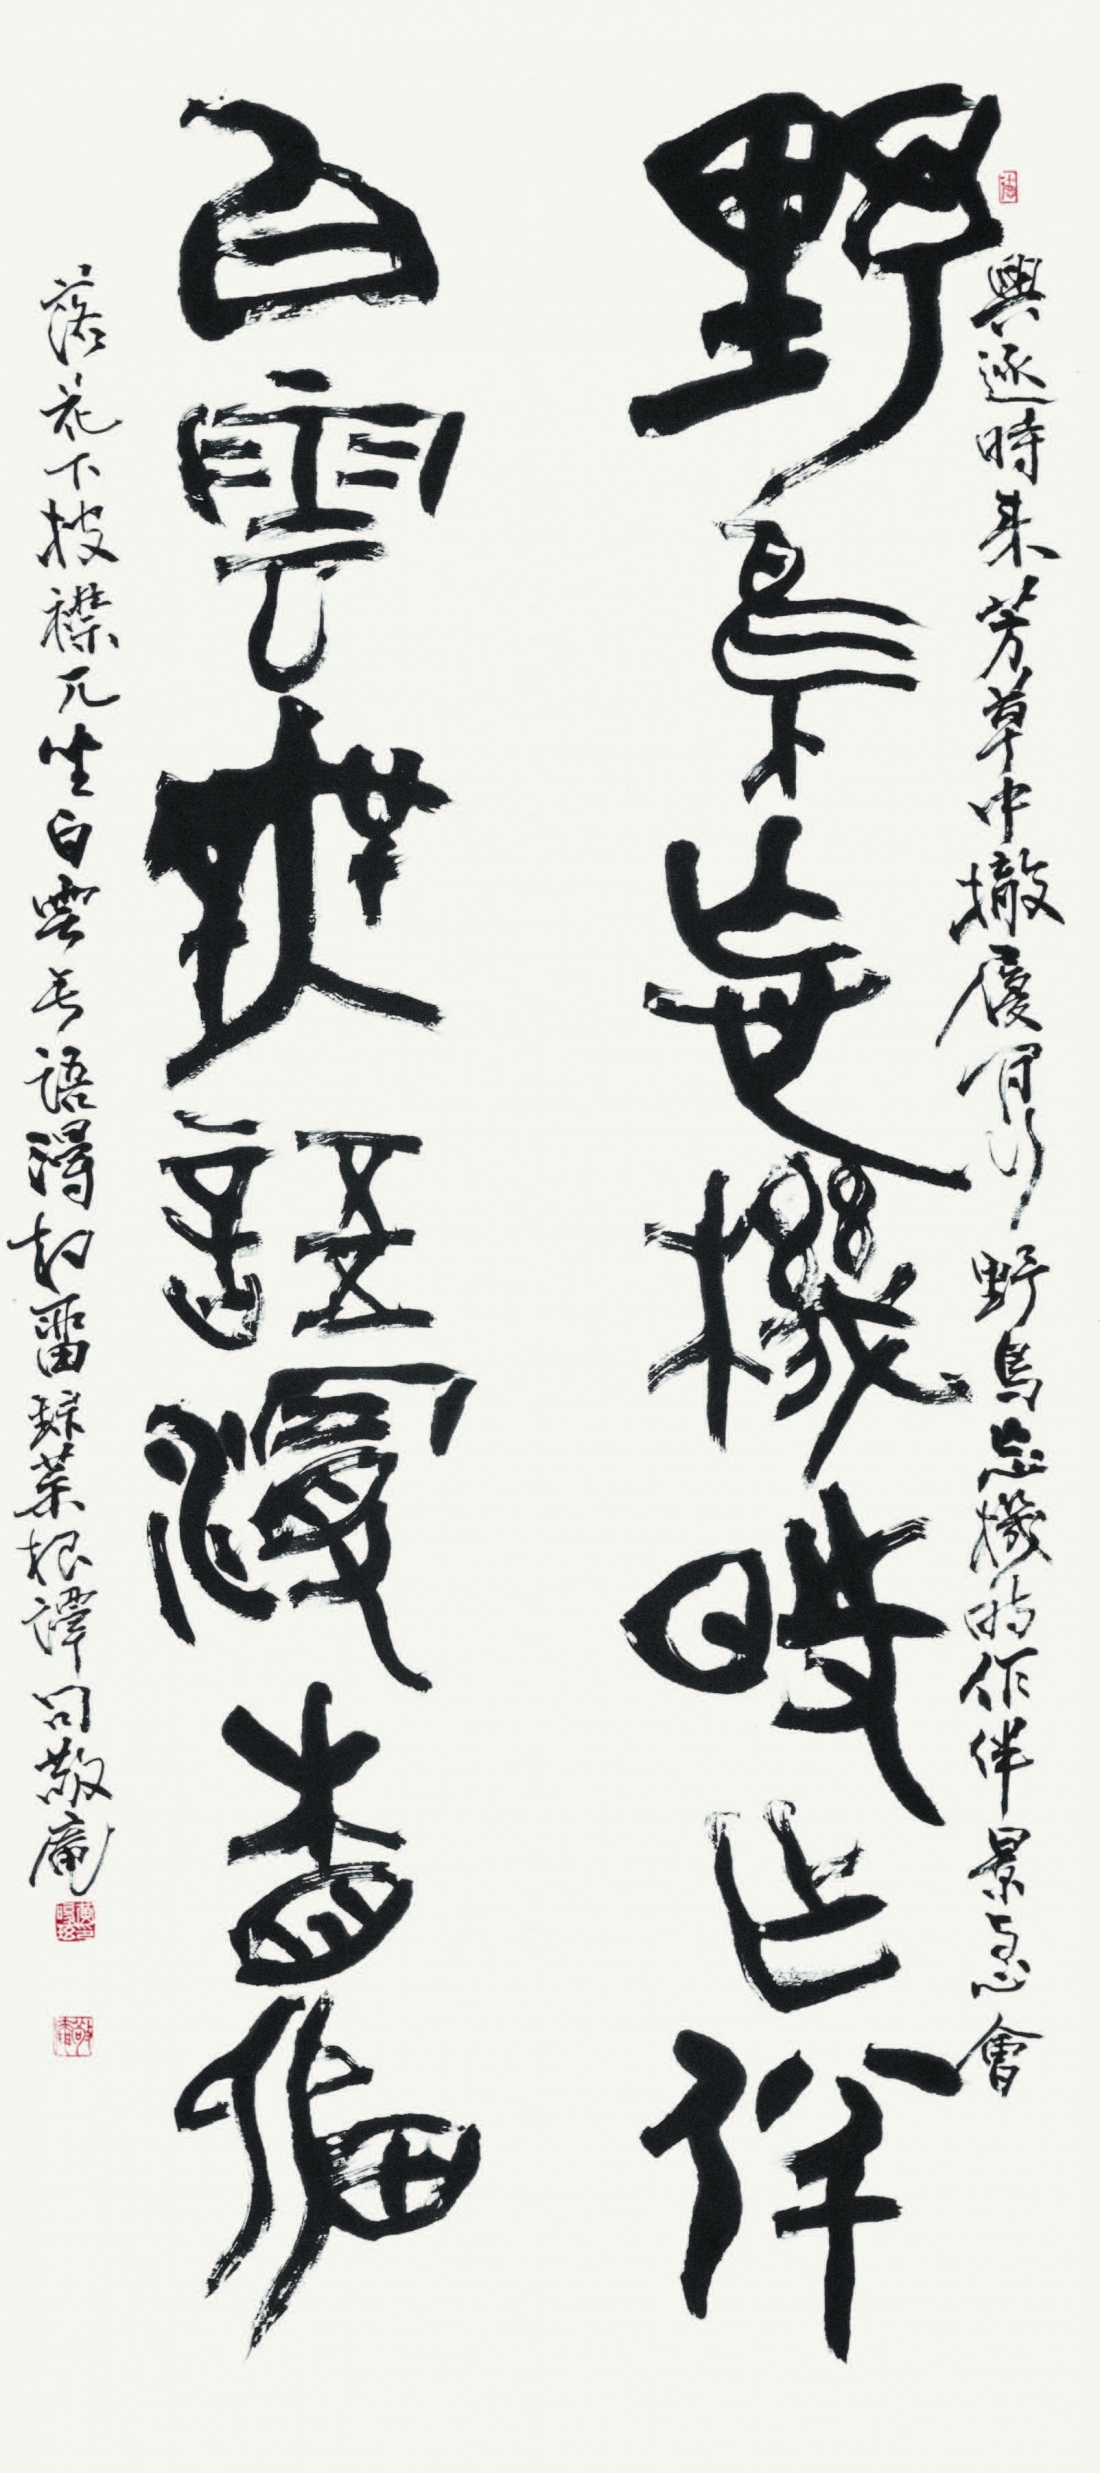 興逐時来芳草中撤履閒行野鳥忘機時作伴景与心會
野鳥忘機時乍伴
白雲無語漫相留
落花下披襟兀坐白雲無語漫相畱録菜根譚句敬庵